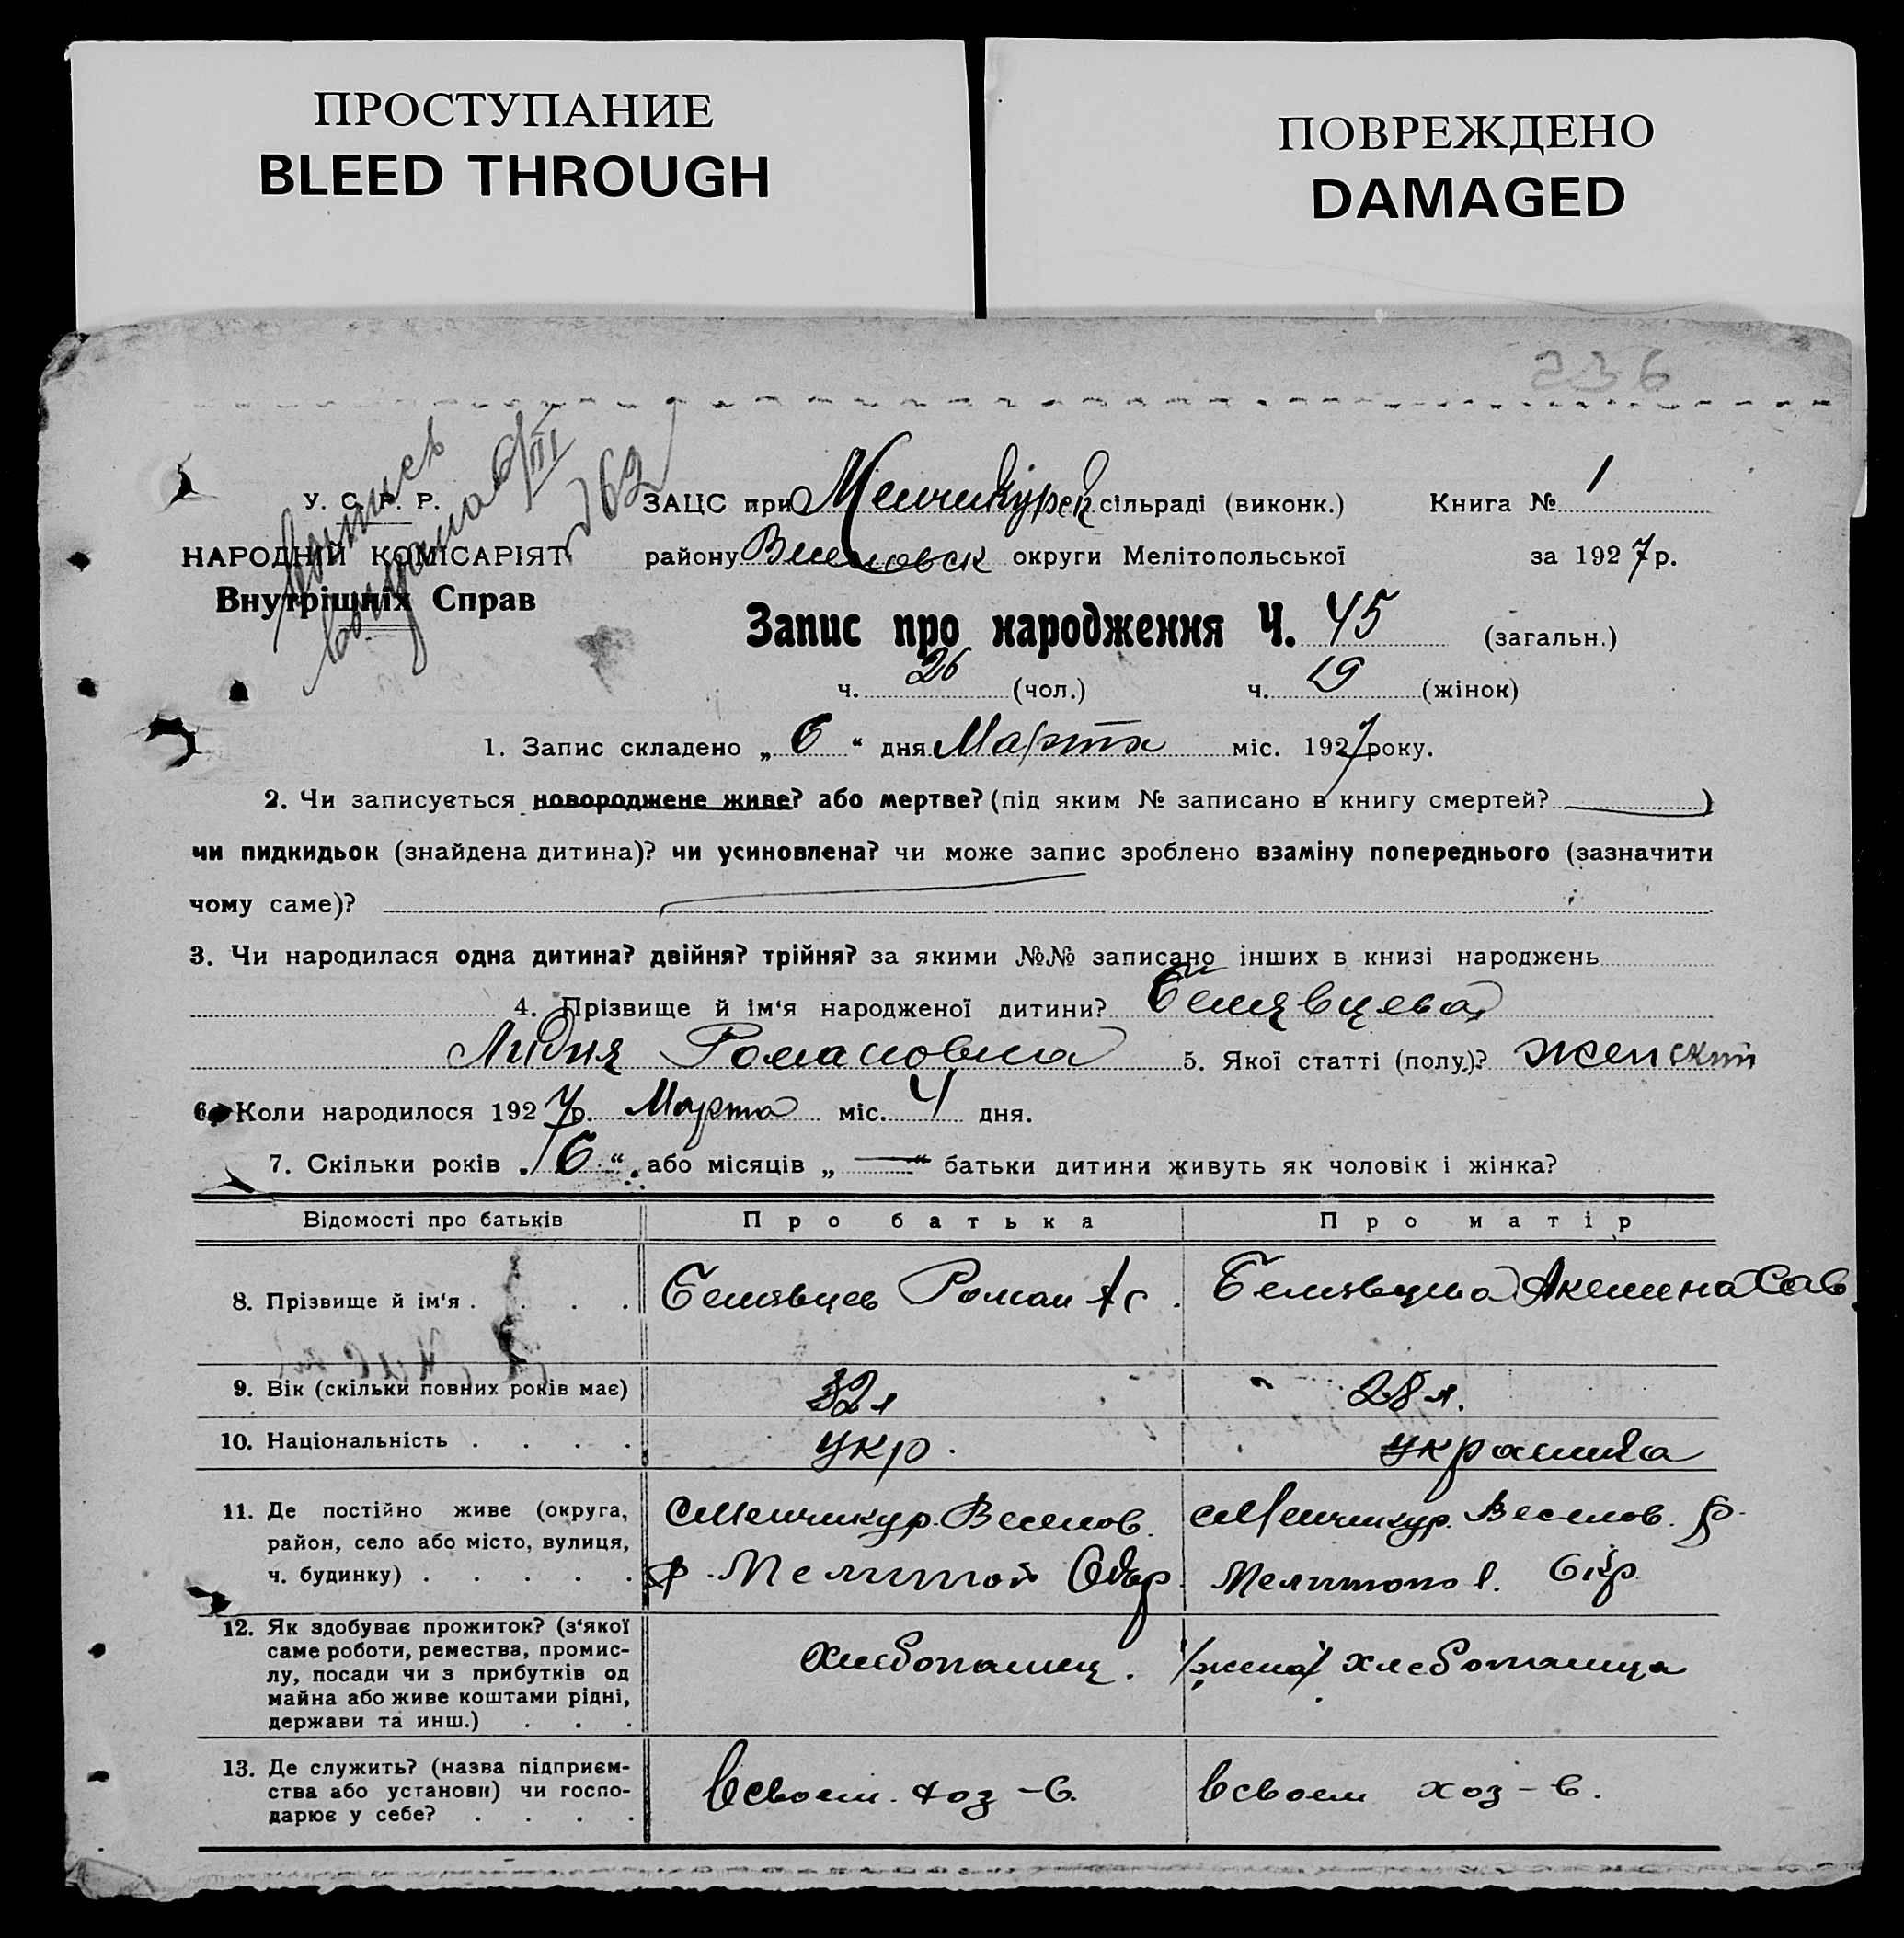 ПРОСТУПАНИЕ
BLEED THROUGH
ПОВРЕЖДЕНО
DAMAGED
236
У. С. Р. Р.
НАРОДНІЙ КОМІСАРІЯТ
Внутрішніх Справ
ЗАЦС при Менчикурск сільраді (виконк.) Книга № 1
району Веселовск округи Мелітопольської за 1927 р.
Запис про народження Ч. 45 (загальн.)
ч. 26 (чол.) ч. 19 (жінок)
1. Запис складено „ 6 “ дня Марта міс. 1927 року.
2. Чи записується новороджене живе? або мертве? (під яким № записано в книгу смертей? )
чи пидкидьок (знайдена дитина)? чи усиновлена? чи може запис зроблено взаміну попереднього (зазначити
чому саме)?
3. Чи народилася одна дитина? двійня? трійня? за якими №№ записано інших в книзі народжень
4. Прізвище й ім‘я народженої дитини? Белявцева
Лидия Романовна 5. Якої статті (полу)? женский
6. Коли народилося 1927 р. Марта міс. 4 дня.
7. Скільки років „ 6 “ або місяців „ — “ батьки дитини живуть як чоловік і жінка?
Відомості про батьків Про батька Про матір
8. Прізвище й ім‘я . . . . Белявцев Роман Ас. Белявцева Акелина Сав
9. Вік (скільки повних років має) 32 л 28 л.
10. Національність . . . . укр. украинка
11. Де постійно живе (округа, с Менчикур. Веселов. с Менчикур. Веселов. р.
район, село або місто, вулиця,
ч. будинку) . . . . . р. Мелитоп Окр. Мелитопол. Окр.
12. Як здобуває прожиток? (з‘якої
саме роботи, ремества, промис- Хлебопашец. /жена/ хлебопашца
лу, посади чи з прибутків од
майна або живе коштами рідні,
держави та инш.) . . .
13. Де служить? (назва підприєм-
ства або установи) чи госпо- В своем хоз-в. В своем хоз-в.
дарює у себе? . . . .